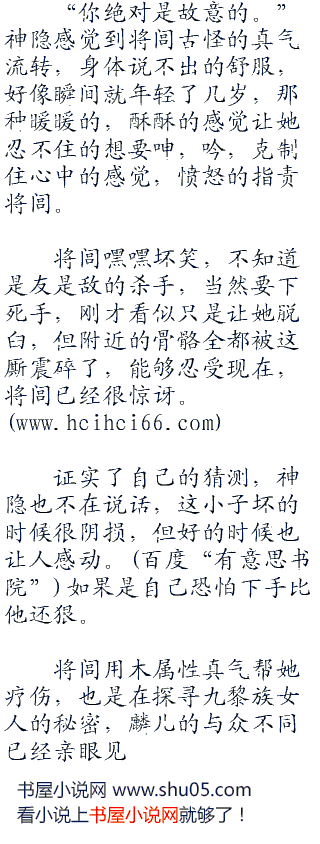 “你绝对是故意的。”
神隐感觉到将闾古怪的真气
流转，身体说不出的舒服，
好像瞬间就年轻了几岁，那
种暖暖的，酥酥的感觉让她
忍不住的想要呻，吟，克制
住心中的感觉，愤怒的指责
将闾。
将闾嘿嘿坏笑，不知道
是友是敌的杀手，当然要下
死手，刚才看似只是让她脱
臼，但附近的骨骼全都被这
厮震碎了，能够忍受现在，
将闾已经很惊讶。
(www.hcihci66.com)
证实了自己的猜测，神
隐也不在说话，这小子坏的
时候很阴损，但好的时候也
让人感动。(百度“有意思书
院”)如果是自己恐怕下手比
他还狠。
将闾用木属性真气帮她
疗伤，也是在探寻九黎族女
人的秘密，麟儿的与众不同
已经亲眼见
书屋小说网 www.shu05.com
看小说上书屋小说网就够了！